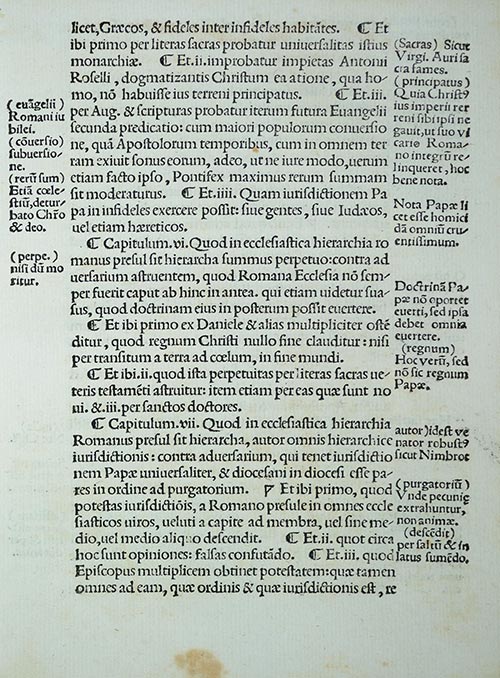 licet, Græcos, & fideles inter infideles habitãtes. ¶ Et
ibi primo per literas sacras probatur uniuersalitas istius
monarchiæ. ¶ Et.ii.improbatur impietas Antonii
Roselli, dogmatizantis Christum ea atione, qua ho-
mo, nõ habuisse ius terreni principatus. ¶ Et.iii.
per Aug. & scripturas probatur iterum futura Euangelii
secunda predicatio: cum maiori populorum conuersio
ne, quã Apostolorum temporibus, cum in omnem ter
ram exiuit sonus eorum, adeo, ut ne iure modo, uerum
etiam facto ipso, Pontifex maximus rerum summam
sit moderatutus. ¶ Et.iiii. Quam iurisdictionem Pa
pa in infideles exercere possit: siue gentes, siue Iudæos,
uel etiam hæreticos.
¶ Capitulum.vi. Quod in ecclesiastica hierarchia ro
manus presul sit hierarcha summus perpetuo: contra ad
uersarium astruentem, quod Romana Ecclesia nõ sem-
per fuerit caput ab hinc in antea. qui etiam uidetur sua-
sus, quod doctrinam eius in posterum possit euertere.
¶ Et ibi primo ex Daniele & alias multipliciter ostẽ
ditur, quod regnum Christi nullo fine clauditur: nisi
per transitum a terra ad cœlum, in fine mundi.
¶ Et ibi.ii.quod ista perpetuitas per literas sacras ue
teris testamẽti astruitur: item etiam per eas quæ sunt no
ui. &.iii.per sanctos doctores.
¶ Capitulum.vii. Quod in ecclesiastica hierarchia
Romanus presul sit hierarcha, autor omnis hierarchicę
iurisdictionis: contra aduersarium, qui tenet iurisdictio
nem Papæ uniuersaliter, & diocesani in diocesi esse pa-
res in ordine ad purgatorium. ¶ Et ibi primo, quod
potestas iurisdictiõis, a Romano presule in omnes eccle
siasticos uiros, ueluti a capite ad membra, uel sine me-
dio, uel medio aliquo descendit. ¶ Et.ii. quot circa
hoc sunt opiniones: falsas confutãdo. ¶ Et.iii. quod
Episcopus multiplicem obtinet potestatem: quæ tamen
omnes ad eam, quæ ordinis & quæ iurisdictionis est, re
(euãgelii)
Romani iu
bilei.
(cõuersio)
subuersio-
ne.
(rerũ sum)
Etiã cœle-
stiũ, detur-
bato Chrõ
& deo.
(perpe.)
nisi dũ mo
ritur.
(Sacras) Sicut
Virgi. Auri sa
cra fames.
(principatus)
Quia Christꝰ
ius imperii ter
reni sibi ipsi ne
gauit, ut suo vi
cario Roma-
no integrũ re-
linqueret, hoc
bene nota.
Nota Papæ li
cet esse homici
dã omniũ cru-
entissimum.
Doctrinã Pa-
pæ nõ oportet
euerti, sed ipsa
debet omnia
euertere.
(regnum)
Hoc verũ, sed
nõ sic regnum
Papæ.
autor) idest ve
nator robustꝰ
sicut Nimbrot
(purgatoriũ)
Vnde pecunię
extrahuntur,
non animæ.
(descẽdit)
per saltũ & in
latus sumẽdo.